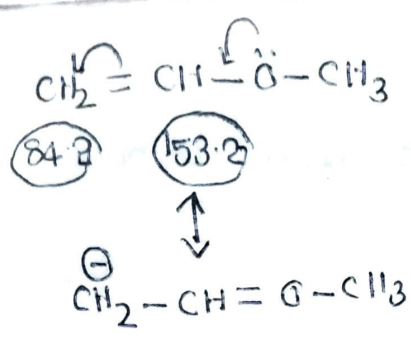 CH₂ = CH – Ö – CH₃
84.2 153.2
⊖
CH₂ – CH = O – CH₃